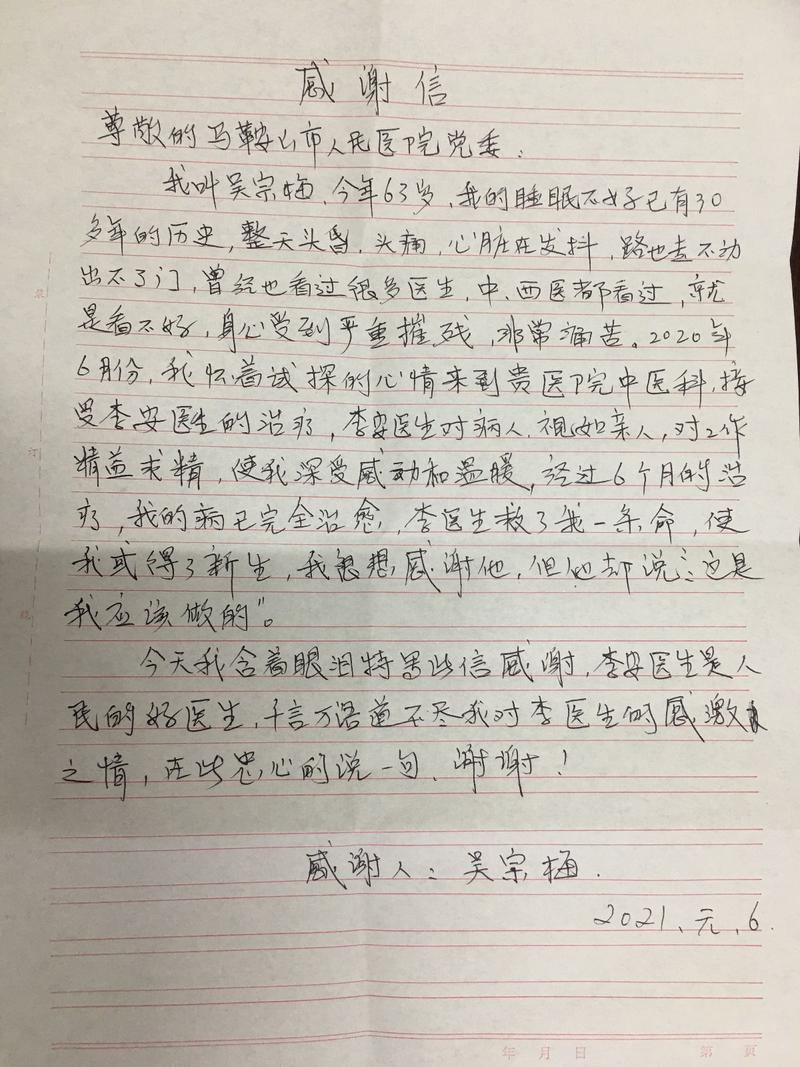 感谢信
尊敬的马鞍山市人民医院党委：
我叫吴宗梅、今年63岁、我的睡眠不好已有30
多年的历史，整天头昏、头痛，心脏在发抖，路也走不动
出不了门，曾经也看过很多医生，中、西医都看过，就
是看不好，身心受到严重摧残，非常痛苦。2020年
6月份，我怀着试探的心情来到贵医院中医科，接
受李安医生的治疗，李安医生对病人、视如亲人，对工作
精益求精，使我深受感动和温暖，经过6个月的治
疗，我的病已完全治愈，李医生救了我一条命，使
我或得了新生，我想想感谢他，但他却说：“这是
我应该做的”。
今天我含着眼泪特写此信感谢，李安医生是人
民的好医生，千言万语道不尽我对李医生的感激
之情，在此忠心的说一句、谢谢！
感谢人：吴宗梅.
2021、元、6.
装
订
线
年 月 日
第 页